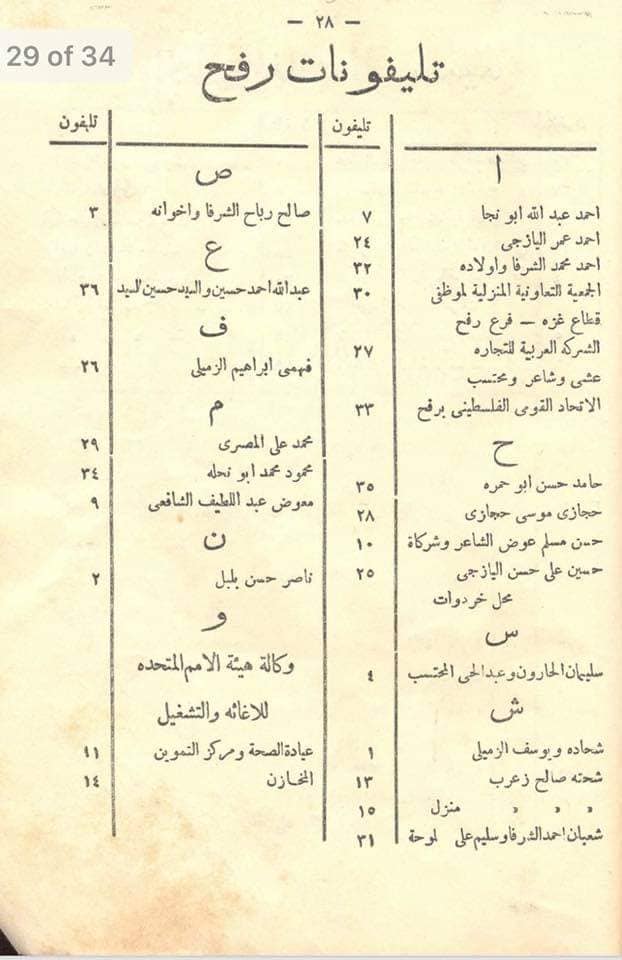 — ٢٨ —
29 of 34
تليفونات رفح
تليفون
ا
احمد عبد الله ابو نجا ٧
احمد عمر اليازجى ٢٤
احمد محمد الشرفا واولاده ٣٢
الجمعية التعاونية المنزلية لموظفى ٣٠
قطاع غزه — فرع رفح
الشركه العربية للتجاره ٢٧
عشى وشاعر ومحتسب
الاتحاد القومى الفلسطينى برفح ٣٣
ح
حامد حسن ابو حمره ٣٥
حجازى موسى حجازى ٢٨
حسن مسلم عوض الشاعر وشركاة ١٠
حسين على حسن اليازجى ٢٥
محل خردوات
س
سليمان الحارون وعبدالحى المحتسب ٤
ش
شحاده ويوسف الزميلى ١
شحته صالح زعرب ١٣
» » » منزل ١٥
شعبان احمد الشرفا وسليم على لوحة ٣١
تليفون
ص
صالح رباح الشرفا واخوانه ٣
ع
عبدالله احمد حسين والسيد حسين السيد ٣٦
ف
فهمى ابراهيم الزميلى ٢٦
م
محمد على المصرى ٢٩
محمود محمد ابو نحله ٣٤
معوض عبد اللطيف الشافعى ٩
ن
ناصر حسن بلبل ٢
و
وكالة هيئة الامم المتحده
للاغاثه والتشغيل
عيادة الصحة ومركز التموين ١١
المخازن ١٤